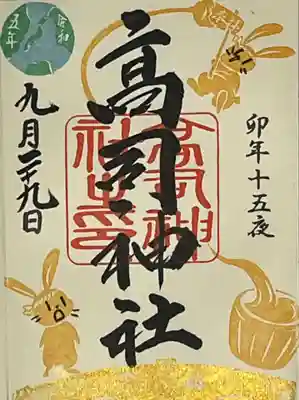 卯年十五夜
高司神社
高司神
社之印
令和
五年
九月二十九日